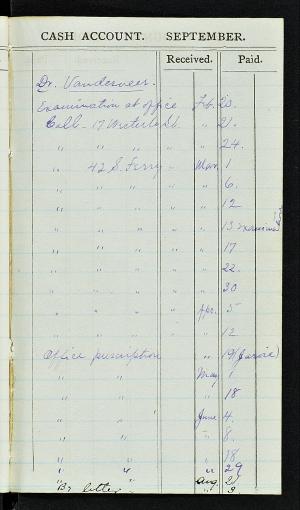 CASH ACCOUNT. SEPTEMBER.
Received. Paid.
Dr. Vanderveer.
Examination at office Feb. 20.
Call - 17 Westerlo St. " 21.
" " " " 24.
" 42 S. Ferry - Mar. 1
" " " " " 6.
" " " " " 12
" " " " " 13
" " " " " 17
" " " " " 22.
" " " " " 30
" " " " Apr. 5
" " " " " 12
Office prescription " 19 (Jarvie)
" " May 1
" " " 18
" " June 4.
" " " 8.
" " " 18
" " " 29
" " Aug. 2
"By letter " 3.